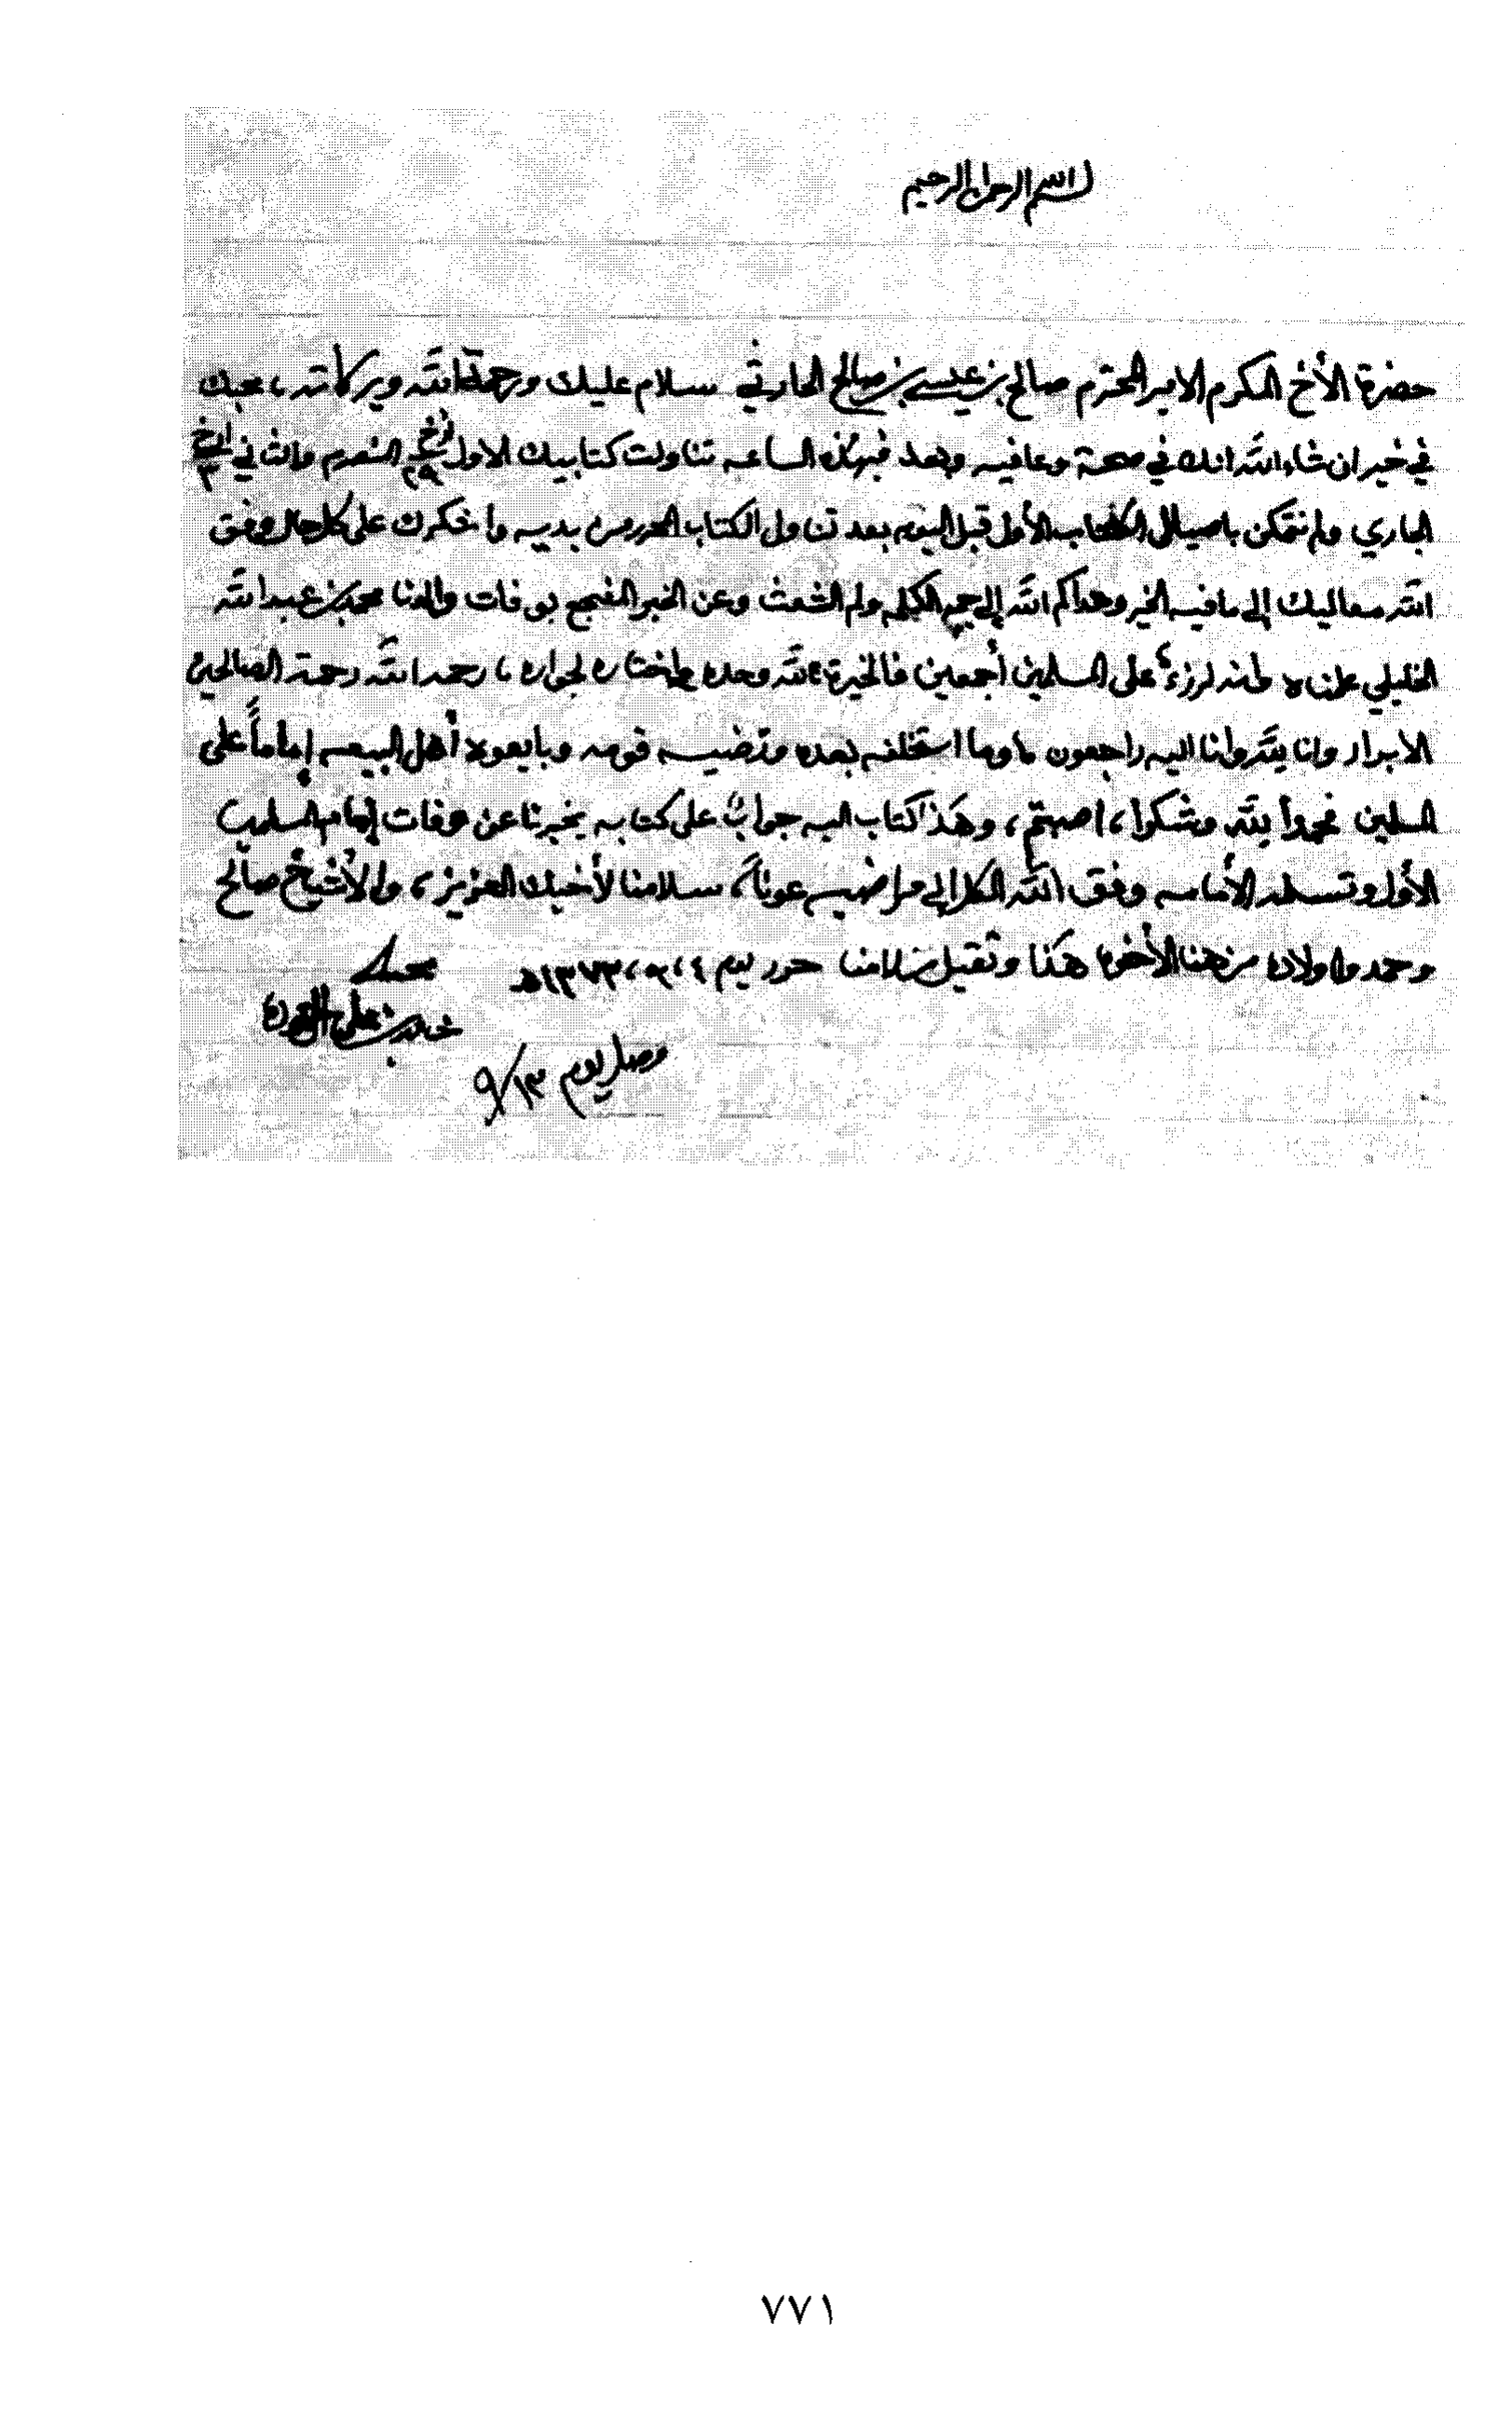 بسم الله الرحمن الرحيم
حضرة الأخ المكرم الامير المحترم صالح بن عيسى بن صالح الحارثي سلام عليك ورحمة الله وبركاته، محبك
في خير ان شاء الله انك في صحة وعافيه وبعد فبهذه الساعه تناولت كتابيك الاول تاريخ ٢٩ المنصرم والثاني في تاريخ ٣
الجاري ولم نتمكن بايصال الكتاب الأول قبل اليوم بعد تناول الكتاب المحرر من يديه واشكرك على كل حال وفق
الله معاليك إلى ما فيه الخير وهداكم الله إلى جمع الكلم ولم الشعث وعن الخبر المفجع بوفات والدنا محمد بن عبدالله
الخليلي علينا لرزء على المسلمين أجمعين فالخيرة لله وحده واختاره لجواره، رحمه الله رحمة الصالحين
الابرار وانا لله وانا اليه راجعون وما استخلفه بعده وترضيه قومه وبايعوه أهل البيعه إماماً على
المسلمين فحمداً لله وشكرا، اصبتم، وهذا كتاب اليه جواب على كتابه يخبرنا عن وفات إمام المسلمين
الأول وتسلمه الأمامه وفق الله الكل إلى مراضيه عوناً، سلامنا لأخيك العزيز، والأشيخ صالح
وحمد واولاده من هنا الأخوة هكذا وتقبل سلامنا حرر ليوم ٤، ٩، ١٣٧٣هـ
محبك
بن علي
وصل يوم ١٣/٩
٧٧١